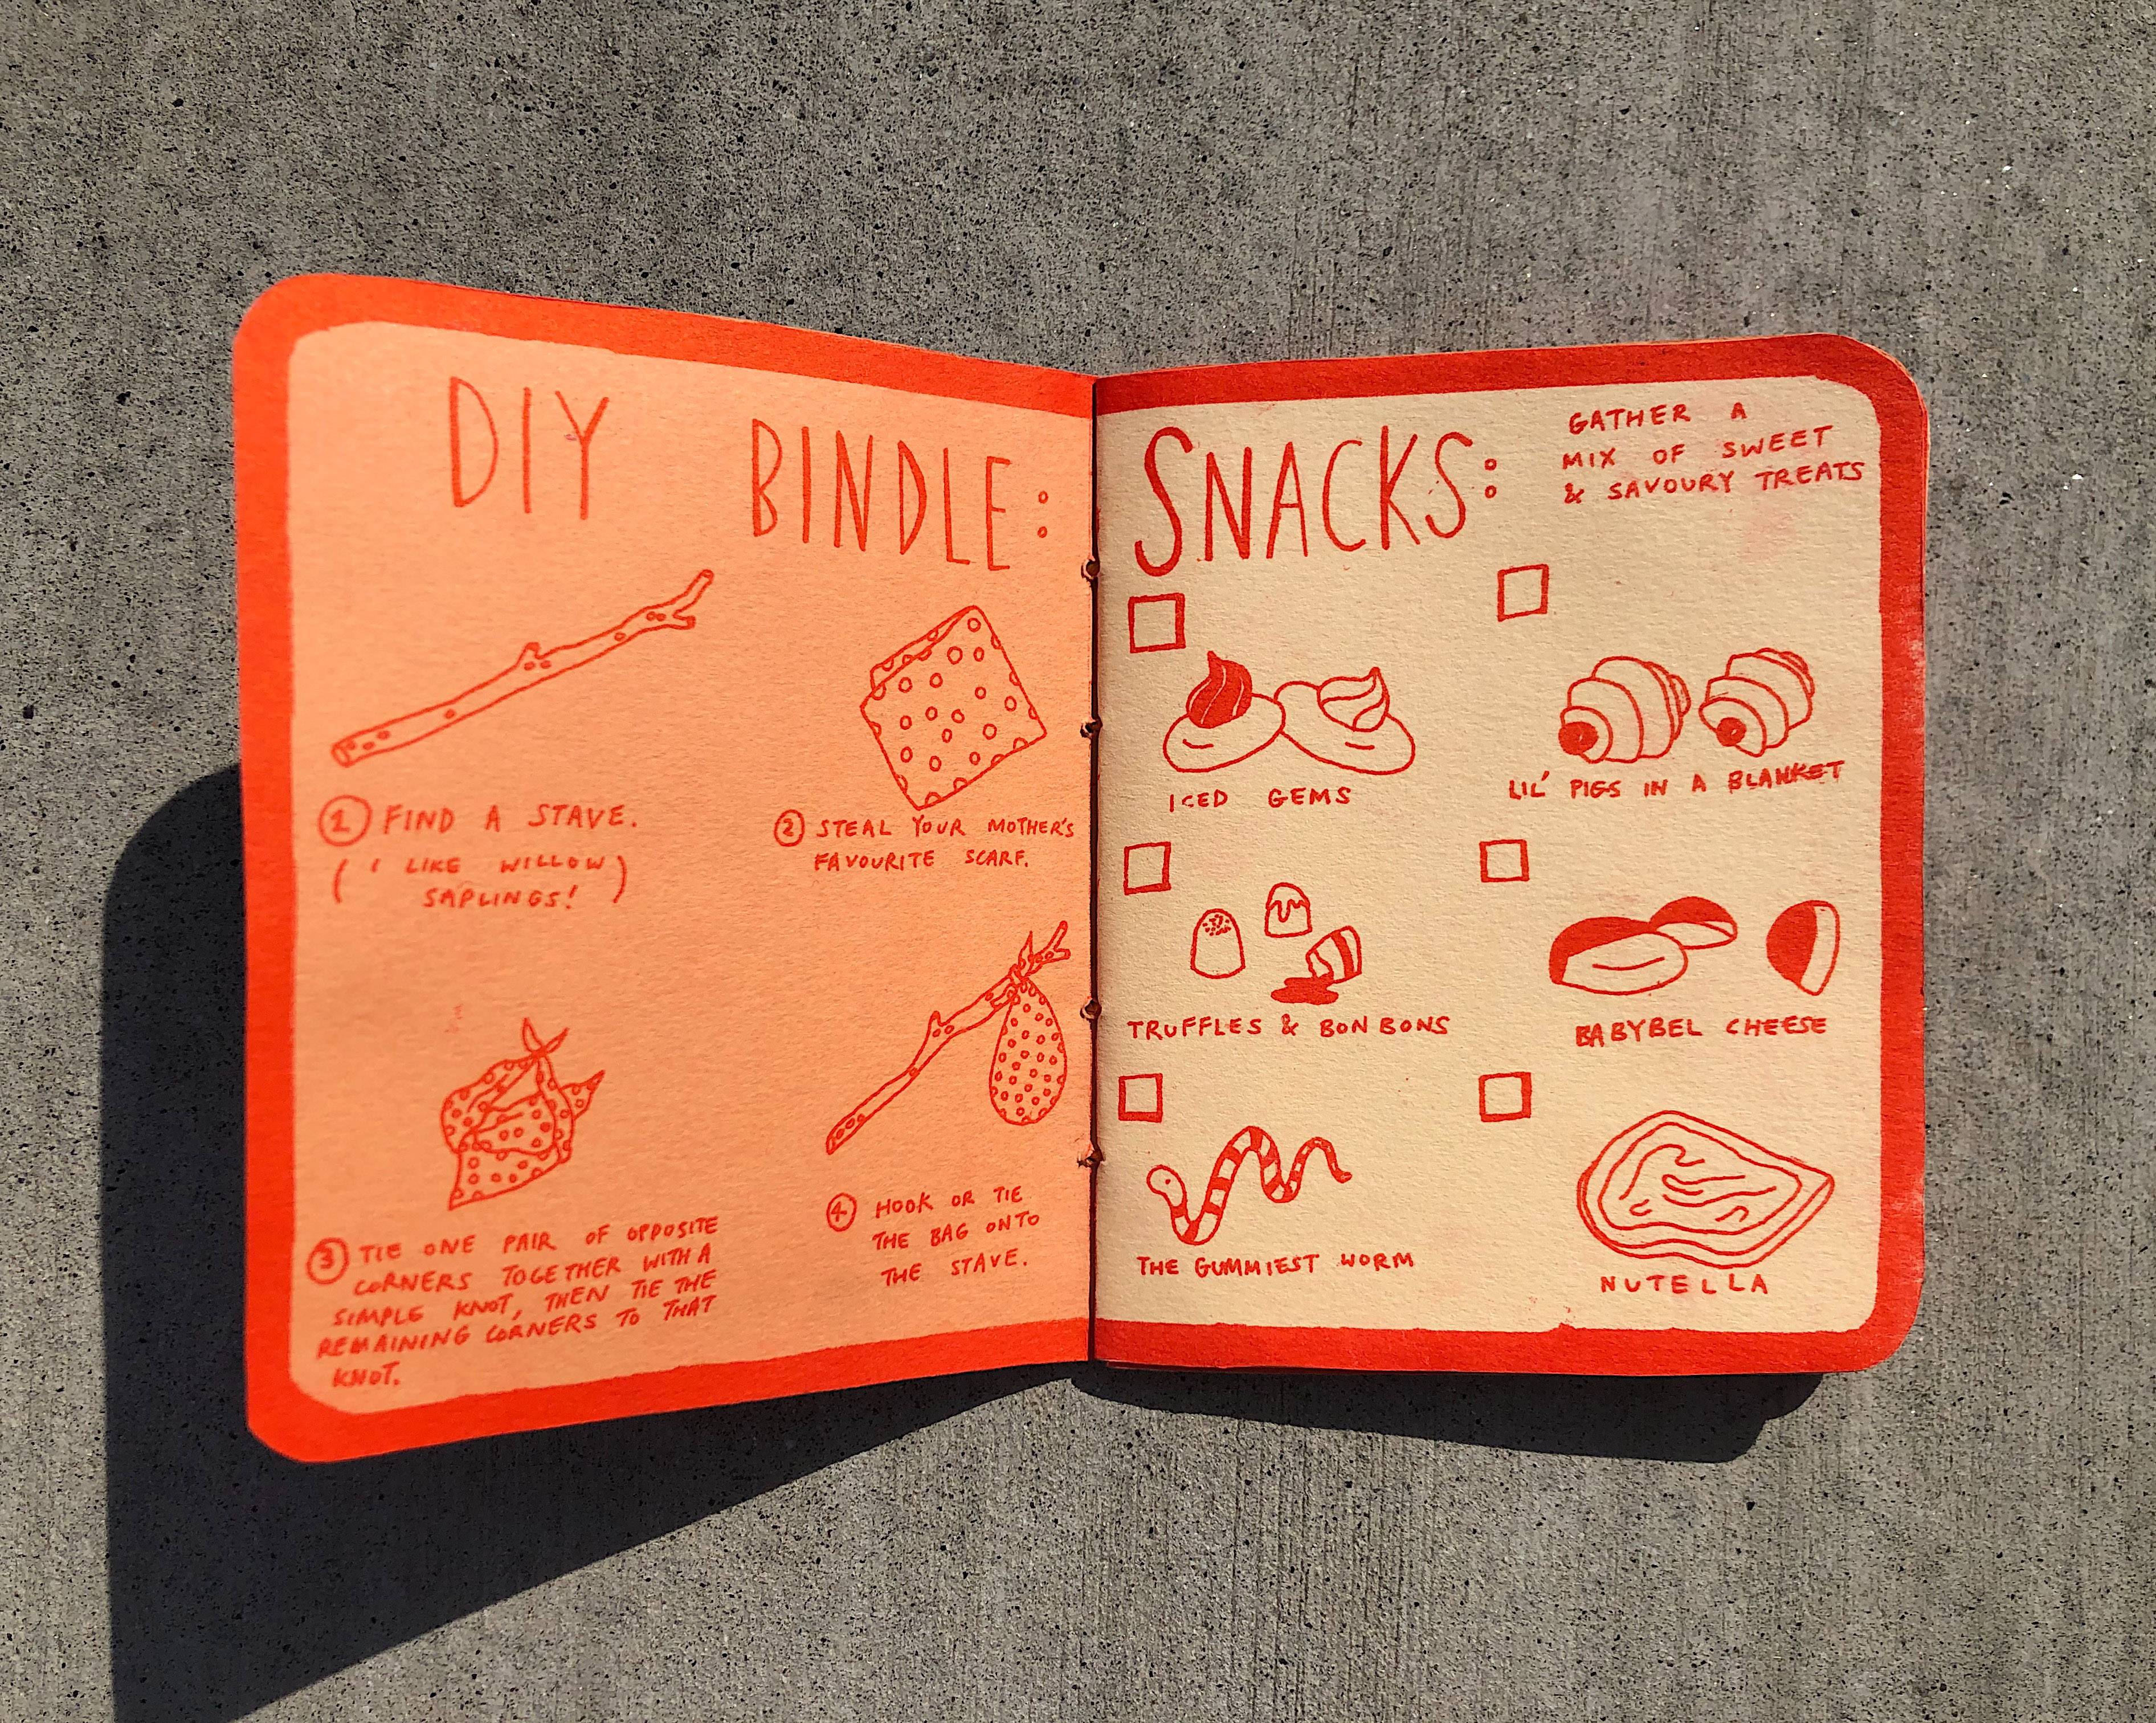 DIY BINDLE:
① FIND A STAVE.
( I LIKE WILLOW )
SAPLINGS!
② STEAL YOUR MOTHER'S
FAVOURITE SCARF.
③ TIE ONE PAIR OF OPPOSITE
CORNERS TOGETHER WITH A
SIMPLE KNOT, THEN TIE THE
REMAINING CORNERS TO THAT
KNOT.
④ HOOK OR TIE
THE BAG ONTO
THE STAVE.
SNACKS:
GATHER A
MIX OF SWEET
& SAVOURY TREATS
ICED GEMS
LIL' PIGS IN A BLANKET
TRUFFLES & BON BONS
BABYBEL CHEESE
THE GUMMIEST WORM
NUTELLA